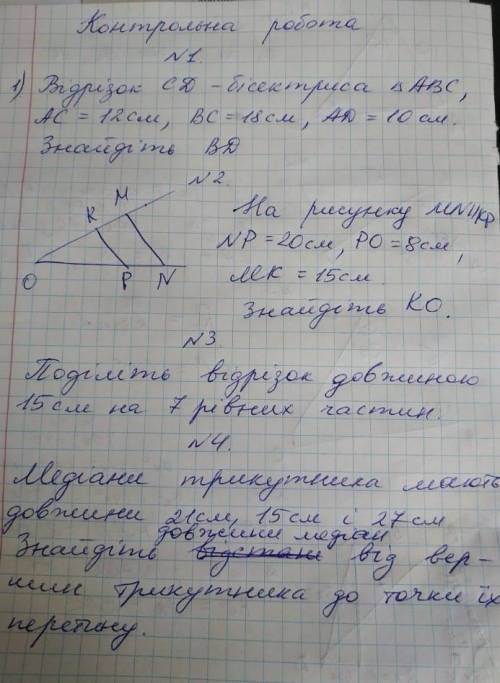 Контрольна робота
№1.
1) Відрізок CD - бісектриса △ABC,
AC = 12см, BC = 18см, AD = 10см.
Знайдіть BD
№2.
На рисунку MN||KP
NP = 20см, PO = 8см,
MK = 15см.
Знайдіть KO.
K M
O P N
№3
Поділіть відрізок довжиною
15см на 7 рівних частин.
№4.
Медіани трикутника мають
довжини 21см, 15см і 27см
довжини медіан
Знайдіть відстані від вер-
шин трикутника до точки їх
перетину.